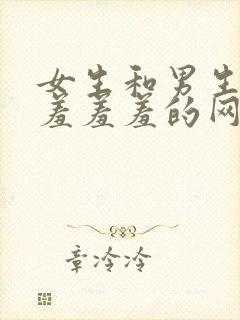 女生和男生
羞羞羞的网
章冷冷